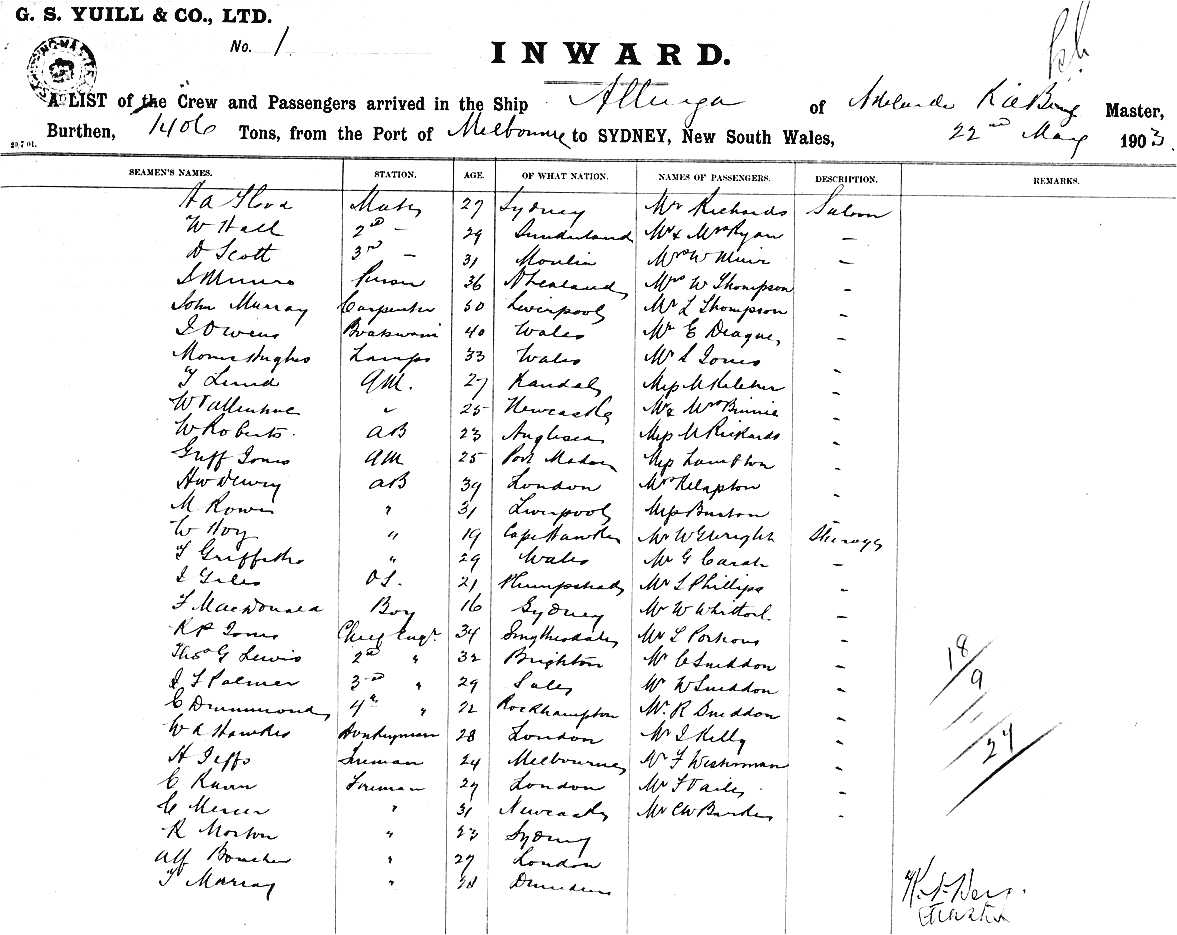 G. S. YUILL & CO., LTD.
No. 1
INWARD.
A LIST of the Crew and Passengers arrived in the Ship Allinga of Adelaide Master,
Burthen, 1406 Tons, from the Port of Melbourne to SYDNEY, New South Wales, 22nd May 1903.
SEAMEN'S NAMES. STATION. AGE. OF WHAT NATION. NAMES OF PASSENGERS. DESCRIPTION. REMARKS.
Mate 27 Sydney Mr Richards Saloon
W Hall 2nd - 29 Sunderland Mr & Mrs Ryan -
D Scott 3rd - 31 Moulin Mrs W Muir -
Munro 36 Mrs W Thompson -
John Murray Carpenter 50 Liverpool Mr L Thompson -
J Owens 40 Wales Mr E Deague -
Morris Hughes Lamps 33 Wales Mr S Jones -
T Lund QM. 27 Miss M Kelcher -
25 Newcastle Mr & Mrs Binnie -
W Roberts. AB 23 Anglesea Miss M Rickards -
Griff Jones QM 25 Port Madoc Miss Lampton -
H W Dewry AB 39 London Mrs Kelapton -
M Rowe " 31 Liverpool Miss Burton -
W Hoy " 19 Cape Hawke Mr W G Wright Steerage
T Griffiths " 29 Wales Mr G Carah -
J Giles OS. 21 Plumpstead Mr S Phillips -
F MacDonald Boy 16 Sydney Mr W -
R P Jones Chief Engr 34 Smythesdale Mr L Porteous -
Thos G Lewis 2nd " 32 Brighton Mr C Sneddon -
J S Palmer 3rd " 29 Sale Mr W Sneddon -
C Drummond 4th " 22 Rockhampton Mr. R Sneddon -
W A Hawkes Donkeyman 28 London Mr J Kelly -
H Jeffs Fireman 24 Melbourne Mr F Westerman -
C Fireman 27 London Mr -
C Mercer " 31 Newcastle Mr C W -
R Morton " 23 Sydney
Alf Boucher " 27 London
T Murray " Dunedin
18
9
27
Master